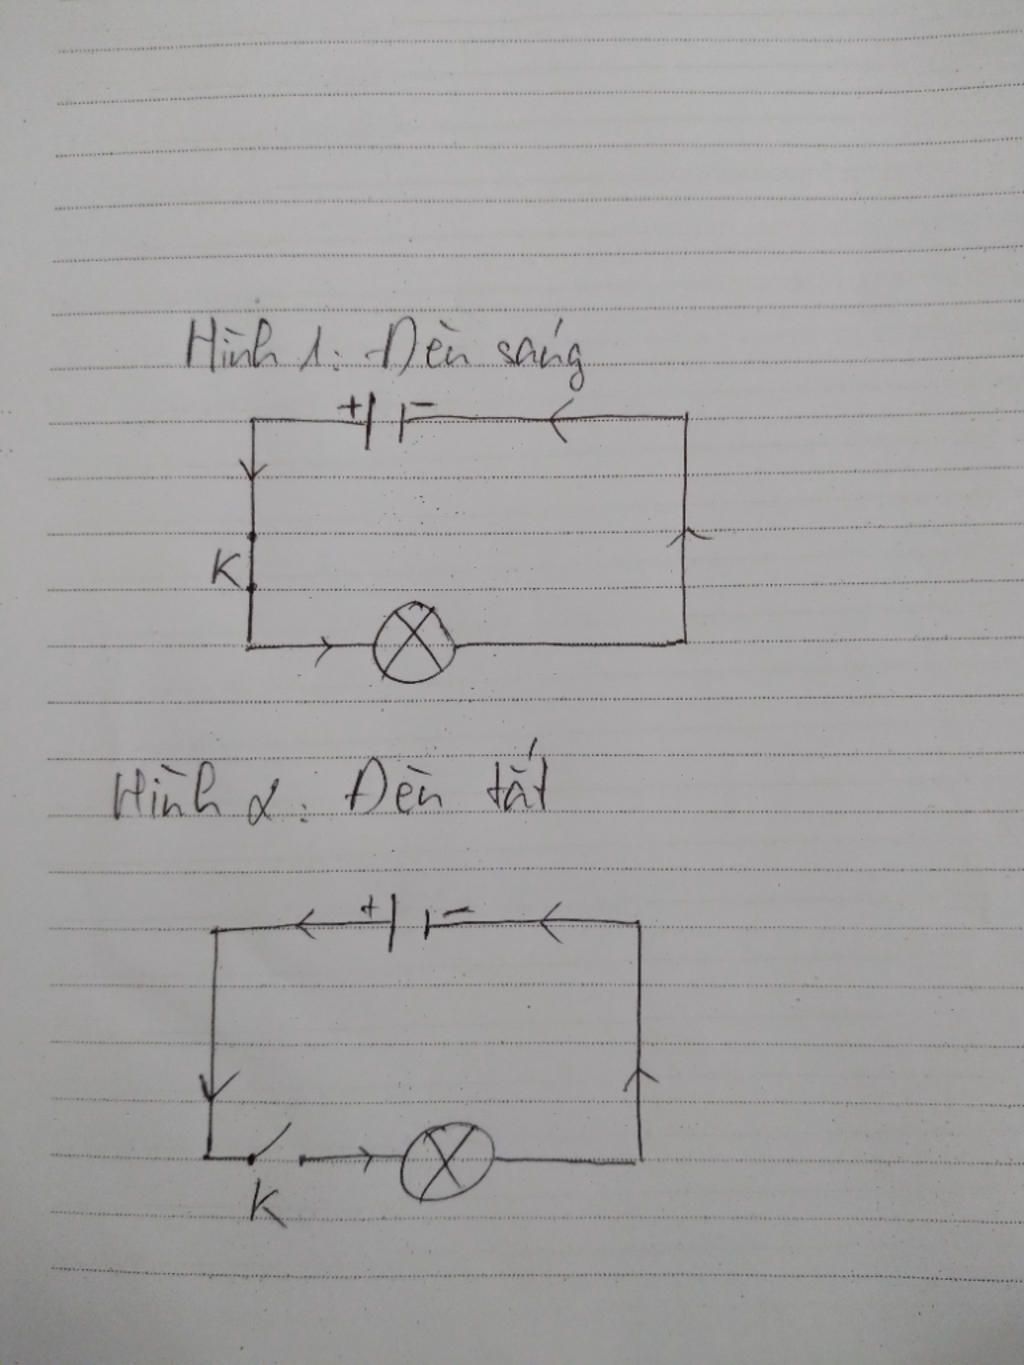 Hình 1: Đèn sáng
+ -
K
Hình 2: Đèn tắt
+ -
K